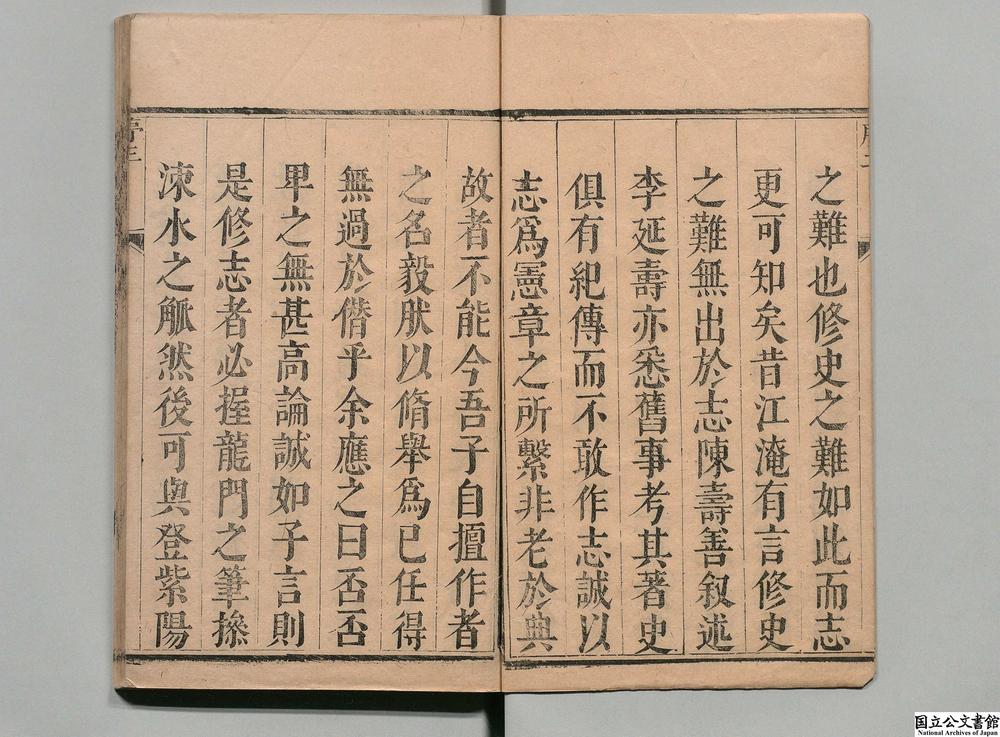 之難也修史之難如此而志
更可知矣昔江淹有言修史
之難無出於志陳壽善叙述
李延壽亦悉舊事考其著史
俱有紀傳而不敢作志誠以
志爲憲章之所繫非老於典
故者不能今吾子自擅作者
之名毅肰以脩舉爲已任得
無過於僭乎余應之曰否否
卑之無甚高論誠如子言則
是修志者必握龍門之筆搽
涑水之觚然後可與登紫陽
序三
国立公文書館
National Archives of Japan